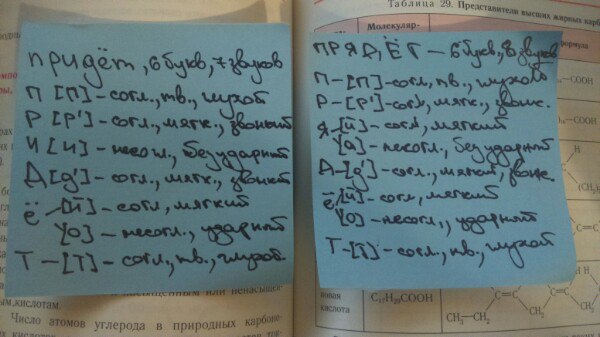 придёт, 6 букв, 7 звуков
П [П] - согл., тв., глухой
Р [Р'] - согл., мягк., звонкий
И [И] - несогл., безударный
Д [д'] - согл., мягк., звонкий
Ё - [Й] - согл., мягкий
\[О] - несогл., ударный
Т - [Т] - согл., тв., глухой
ПРЯД,ЁТ - 6 букв, 8 звуков
П - [П] - согл., тв., глухой
Р - [Р'] - согл, мягк., звонк.
Я - [й] - согл, мягкий
\[а] - несогл., безударный
Д - [д'] - согл., мягкий, звонк.
ё - [й] - согл., мягкий
\[О] - несогл., ударный
Т - [Т] - согл., тв., глухой
Таблица 29. Представители высших жирных
Молекуляр-
формула
COOH
COOH
новая
кислота
C₁₇H₂₉COOH
ым,кислотам.
Число атомов углерода в природных карбоно-